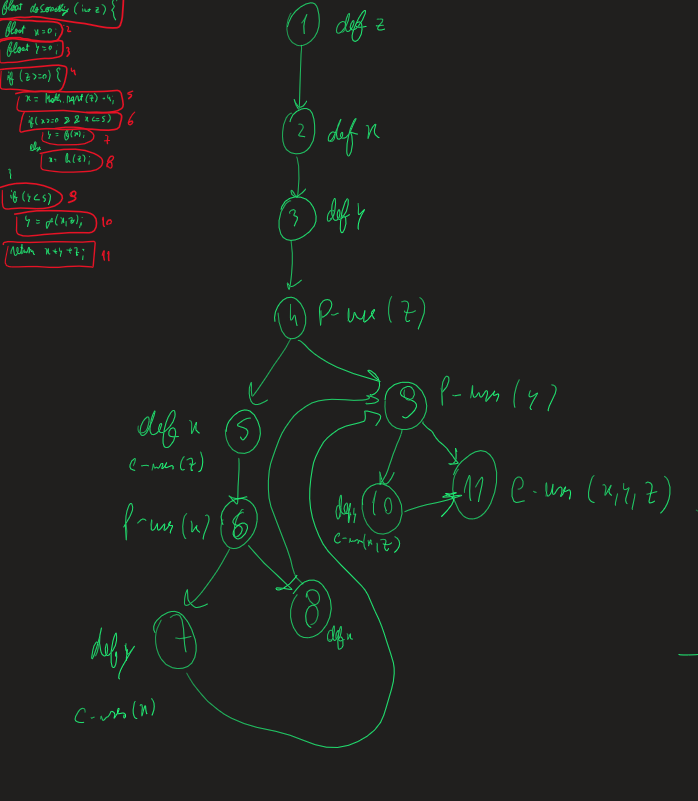 float doSomething (int z) {
float x=0; 2
float y=0; 3
if (z>=0) { 4
x = Math.sqrt(z) + 4; 5
if (x>=0 && x<=5) 6
y = f(x); 7
else
x = h(z); 8
}
if (y<5) 9
y = g(x,z); 10
return x+y+z; 11
1 def z
2 def x
3 def y
4 P-use (z)
9 P-use (y)
def x 5
c-use (z)
11 C-use (x,y,z)
def y 10
c-use(x,z)
P-use (x) 6
8 def x
7
def y
c-use (x)